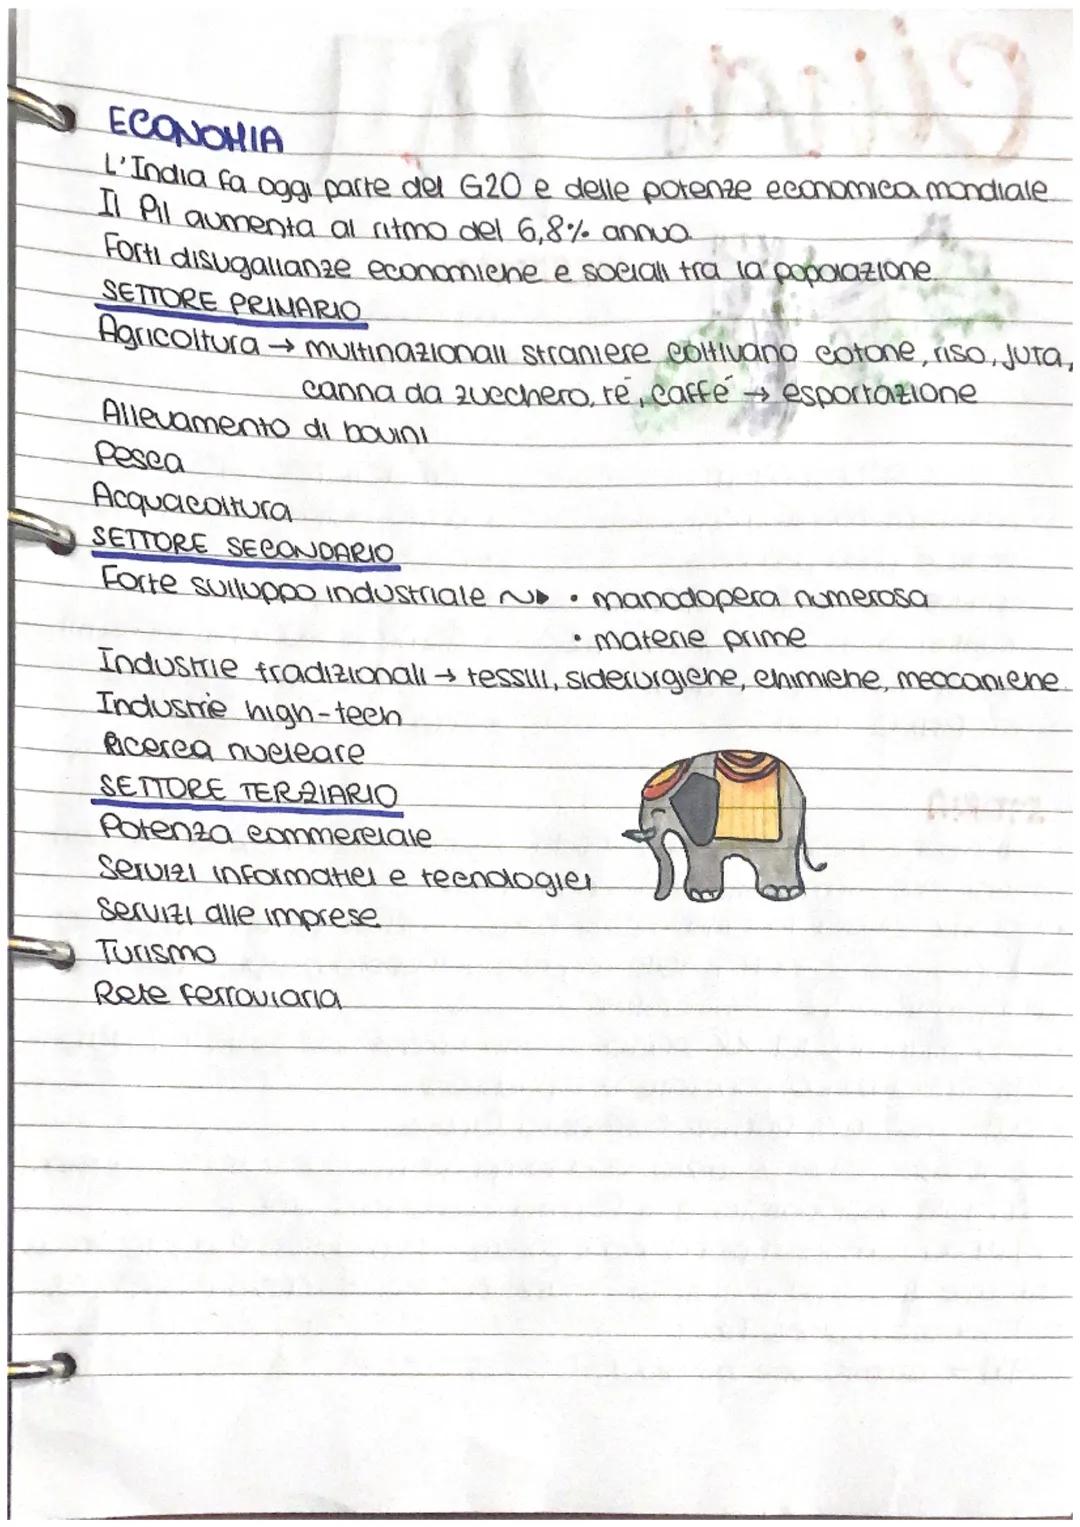 ECONOMIA
L'India fa oggi parte del G20 e delle potenze economica mondiale
Il Pil aumenta al ritmo del 6,8% annuo
Forti disugalianze economiche e sociali tra la popolazione
SETTORE PRIMARIO
Agricoltura → multinazionali straniere coltivano cotone, riso, juta,
canna da zucchero, té, caffé → esportazione
Allevamento di bovini
Pesca
Acquacoltura
SETTORE SECONDARIO
Forte sviluppo industriale ~► • manodopera numerosa
• materie prime
Industrie tradizionali → tessili, siderurgiche, chimiche, meccaniche
Industrie high-tech
Ricerca nucleare
SETTORE TERZIARIO
Potenza commerciale
Servizi informatici e tecnologici
Servizi alle imprese
Turismo
Rete ferroviaria